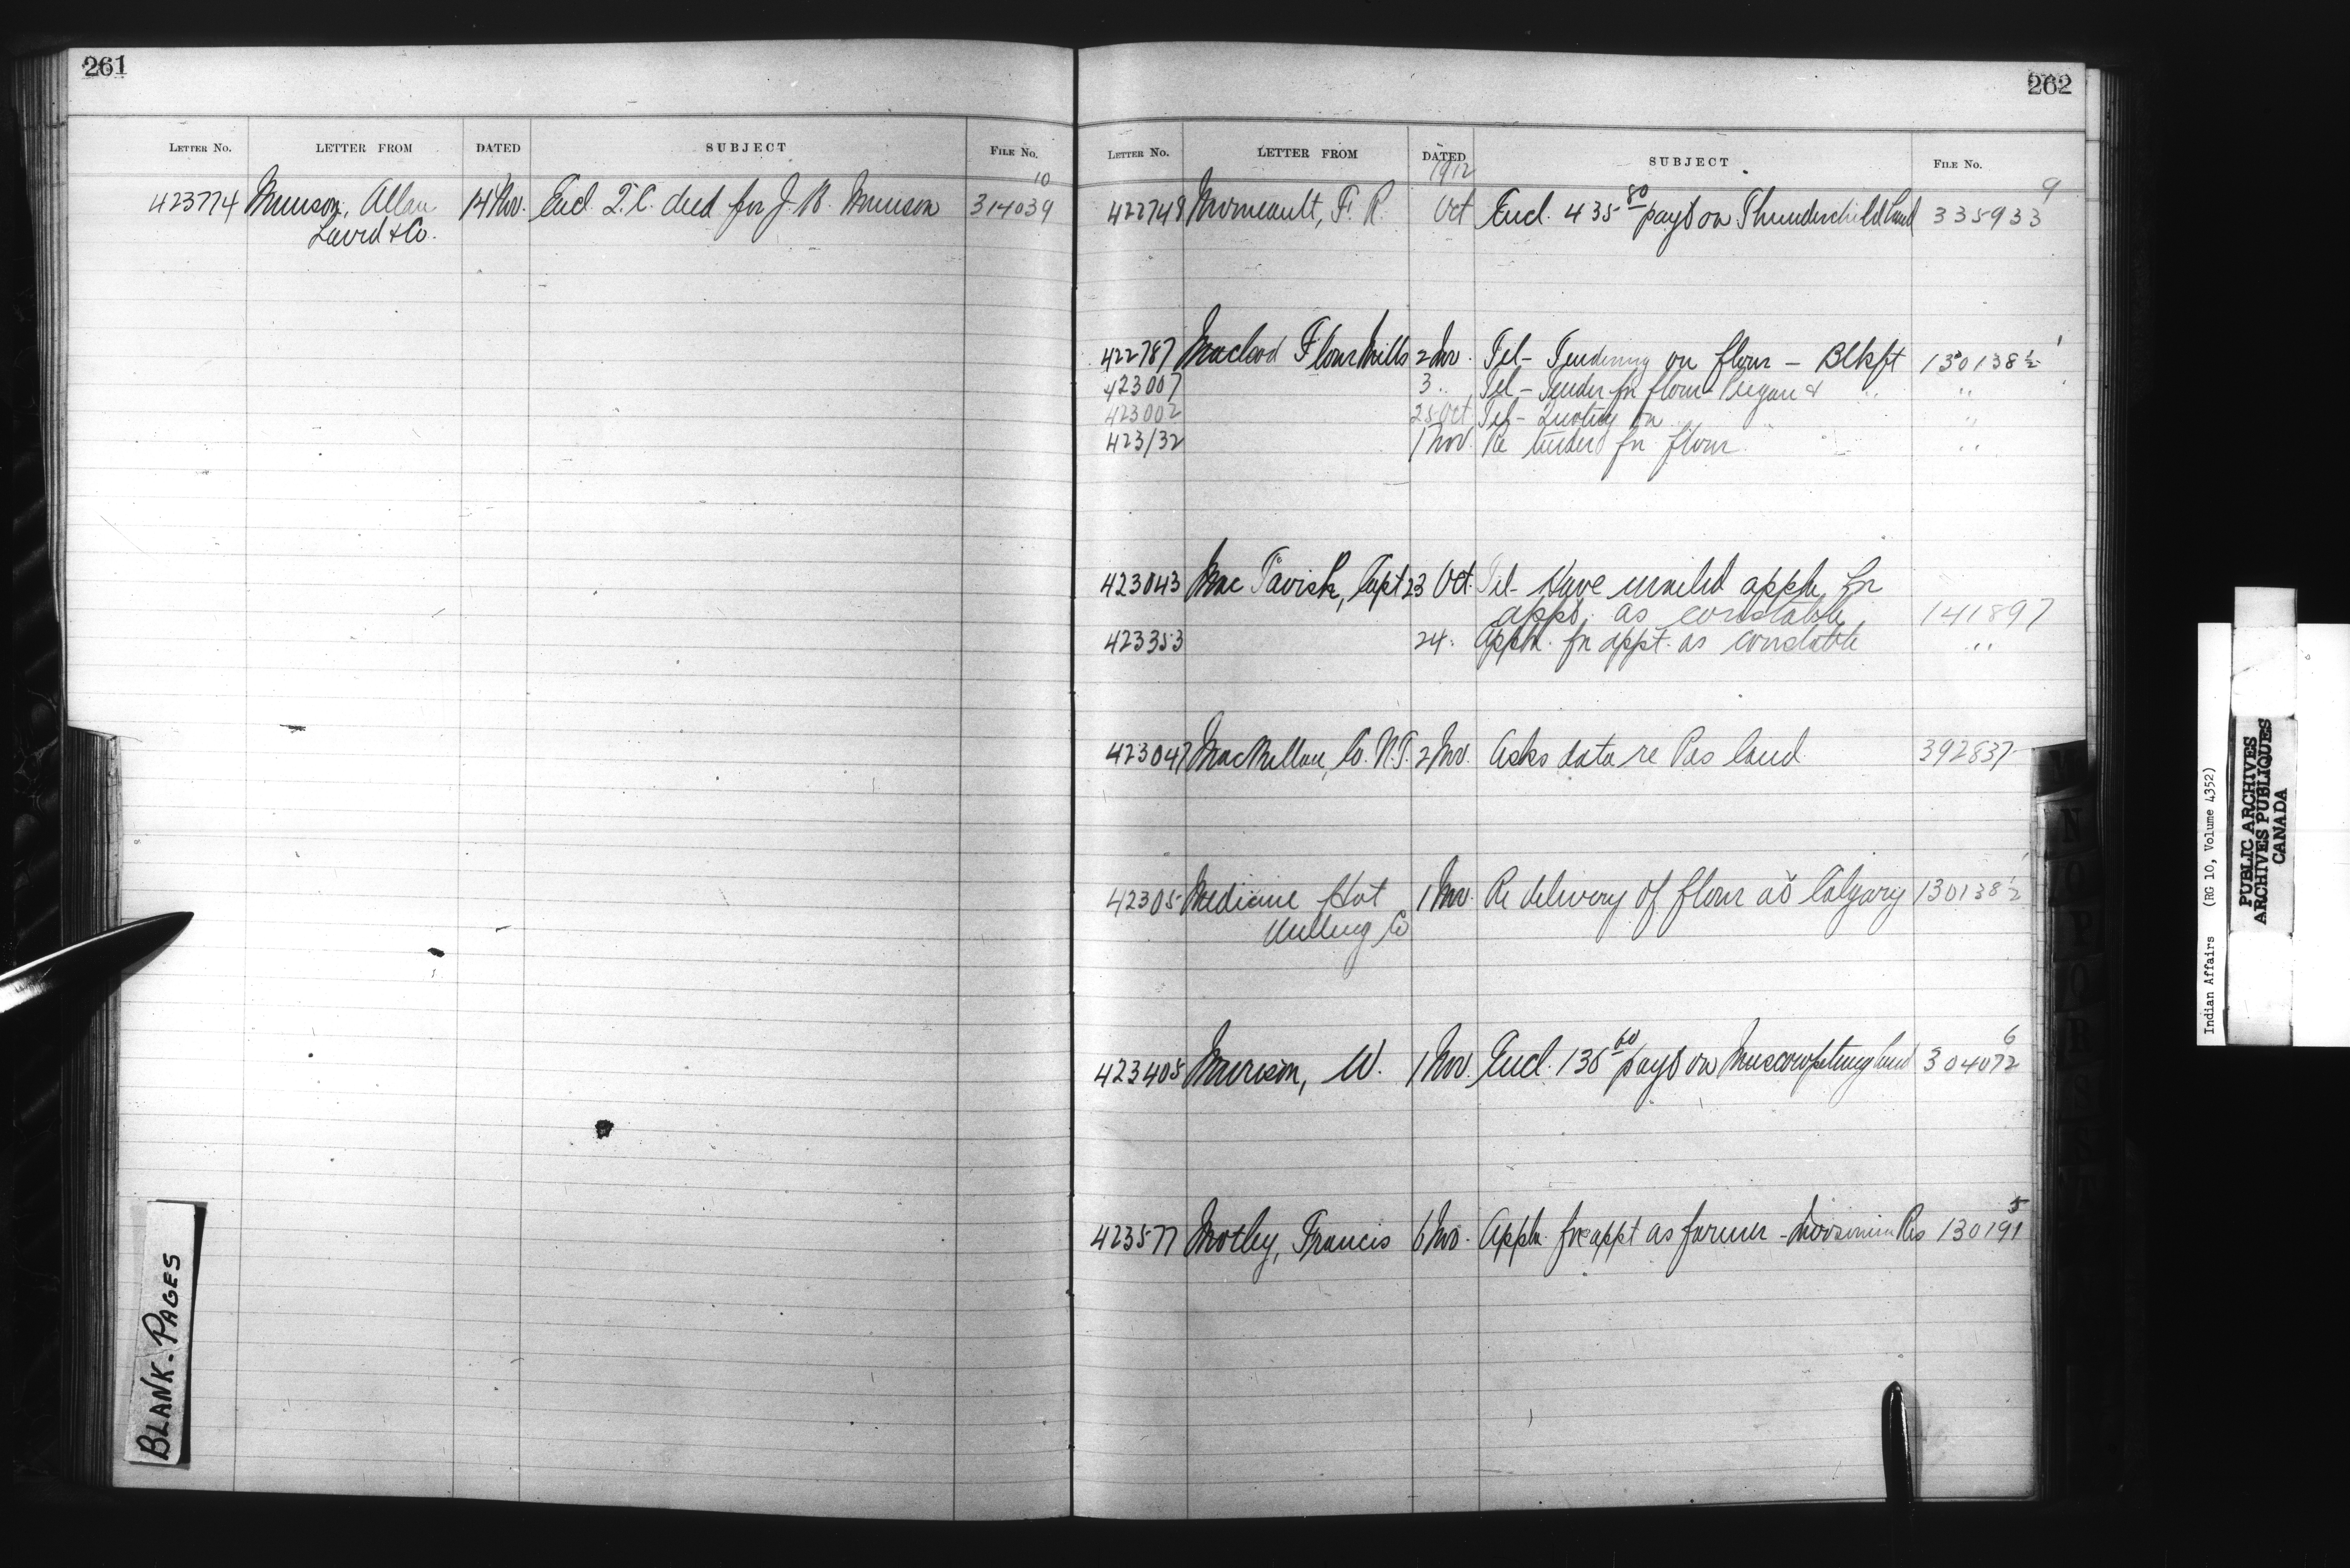 261
LETTER No. LETTER FROM DATED SUBJECT FILE No.
423774 Munson, Allan 14 Nov. Encl. T.C. deed for J. H. Munson 314039 10
Laird & Co.
262
LETTER No. LETTER FROM DATED SUBJECT FILE No.
1912
422748 Morneault, F. R. Oct Encl. 435 80 payt on Thunderchild land 335933 9
422787 Macleod Flour Mills 2 Nov. Tel - Tendering on flour - Blkft 130138 1/2 1
423007 3 " Tel - Tender for flour - Peigan & " "
423002 25 Oct Tel - Quoting on " "
423132 1 Nov. Re tender for flour " "
423043 Mac Tavish, Capt 23 Oct. Tel - Have mailed appln for
appt. as constable 141897
423353 24 " Appln. for appt. as constable " "
423047 MacMillan, Co. N.T. 2 Nov. Asks data re Pas land 392837
42305 Medicine Hat 1 Nov. Re delivery of flour at Calgary 130138 1/2
Milling Co
423405 Morrison, W. 1 Nov. Encl. 136 60 payt on Muscowpetung land 304072 6
423577 Motley, Francis 6 Nov. Appln. for appt as farmer - Moosomin Res 130191 5
BLANK. PAGES
N
O
P
Q
R
S
Indian Affairs (RG 10, Volume 4352)
PUBLIC ARCHIVES
ARCHIVES PUBLIQUES
CANADA